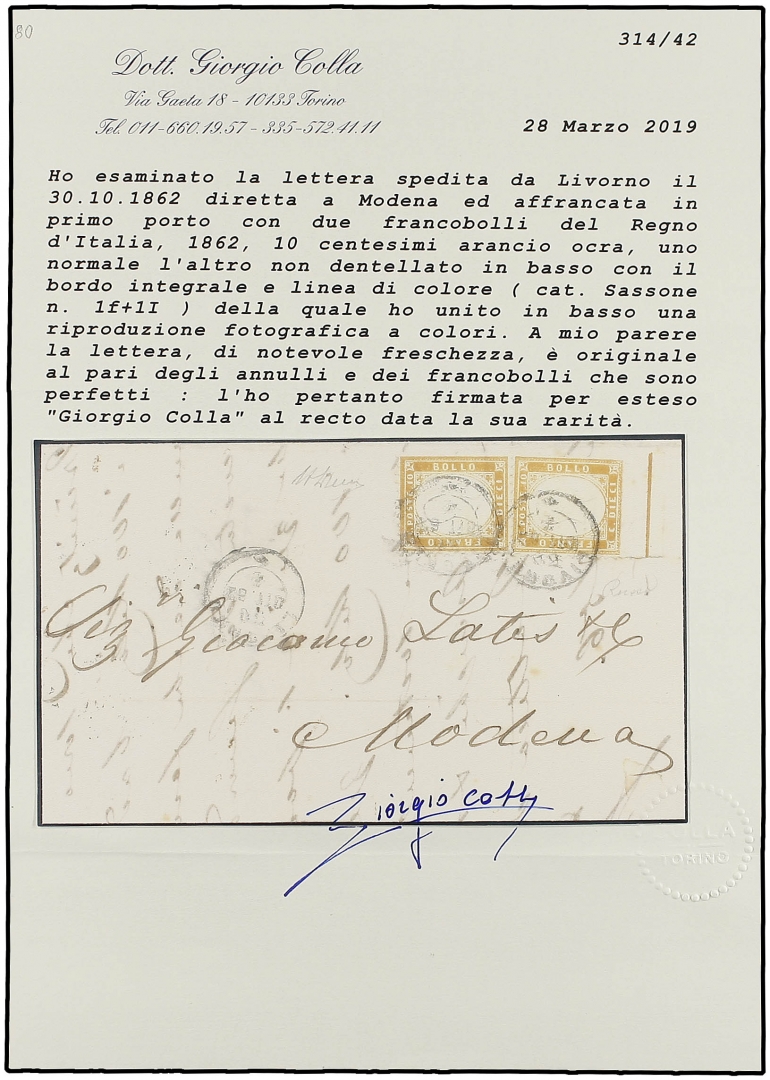 80
314/42
Dott. Giorgio Colla
Via Gaeta 18 - 10133 Torino
Tel. 011-660.19.57 - 335-572.41.11
28 Marzo 2019
Ho esaminato la lettera spedita da Livorno il
30.10.1862 diretta a Modena ed affrancata in
primo porto con due francobolli del Regno
d'Italia, 1862, 10 centesimi arancio ocra, uno
normale l'altro non dentellato in basso con il
bordo integrale e linea di colore ( cat. Sassone
n. 1f+1I ) della quale ho unito in basso una
riproduzione fotografica a colori. A mio parere
la lettera, di notevole freschezza, è originale
al pari degli annulli e dei francobolli che sono
perfetti : l'ho pertanto firmata per esteso
"Giorgio Colla" al recto data la sua rarità.
BOLLO BOLLO
POSTE C. DIECI POSTE C. DIECI
FRANCO FRANCO
Giacomo Latis
Modena
Giorgio Colla
COLLA
TORINO